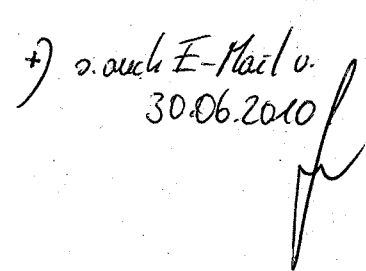 +) s. auch E-Mail v.
30.06.2010